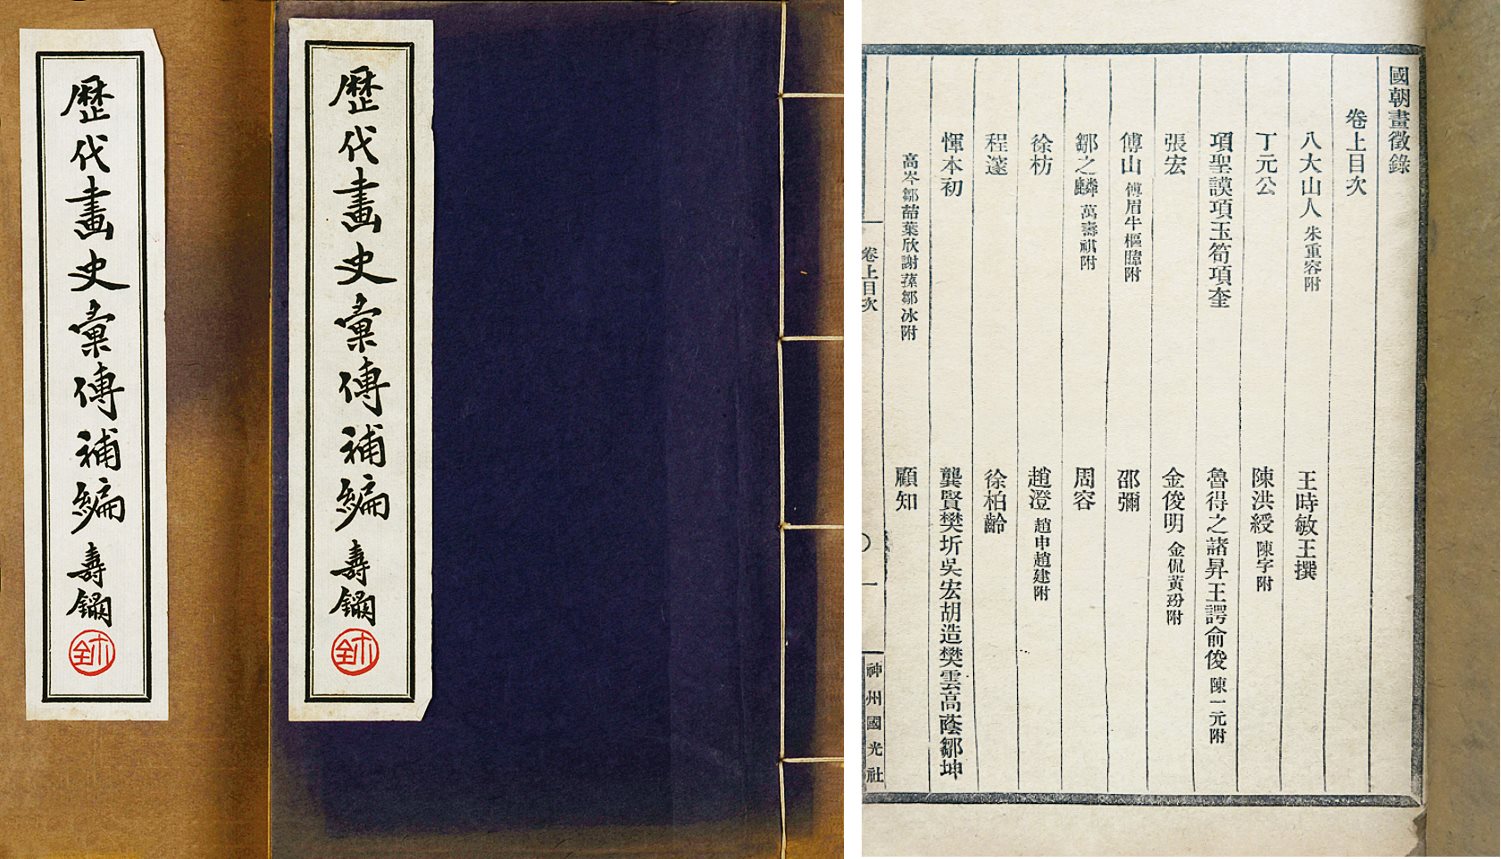 歷代畫史彙傳補編
壽鑈
鉥
歷代畫史彙傳補編
壽鑈
鉥
國朝畫徵錄
卷上目次
八大山人 朱重容附
王時敏王撰
丁元公
陳洪綬 陳字附
項聖謨項玉筍項奎
魯得之諸昇王諤俞俊 陳一元附
張宏
金俊明 金侃黃玢附
傅山 傅眉牛樞暐附
邵彌
鄒之麟 萬壽祺附
周容
徐枋
趙澄 趙申趙建附
程邃
徐柏齡
惲本初
龔賢樊圻吳宏胡造樊雲高蔭鄒坤
高岑鄒喆葉欣謝蓀鄒冰附
顧知
卷上目次
一
神州國光社